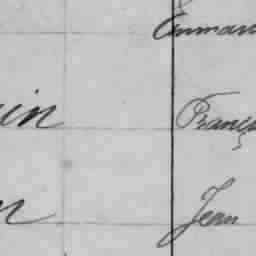 Emman
in Franç
n Jean